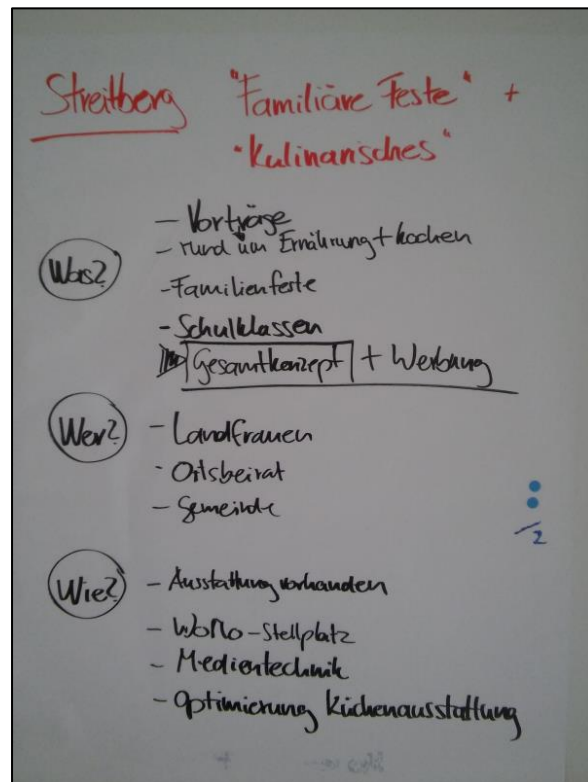 Streitberg "Familiäre Feste" +
"Kulinarisches"
Was?
- Vorträge
- rund um Ernährung + kochen
- Familienfeste
- Schulklassen
Gesamtkonzept + Werbung
Wer?
- Landfrauen
- Ortsbeirat
- Gemeinde
/2
Wie?
- Ausstattung vorhanden
- WoMo-Stellplatz
- Medientechnik
- Optimierung Küchenausstattung